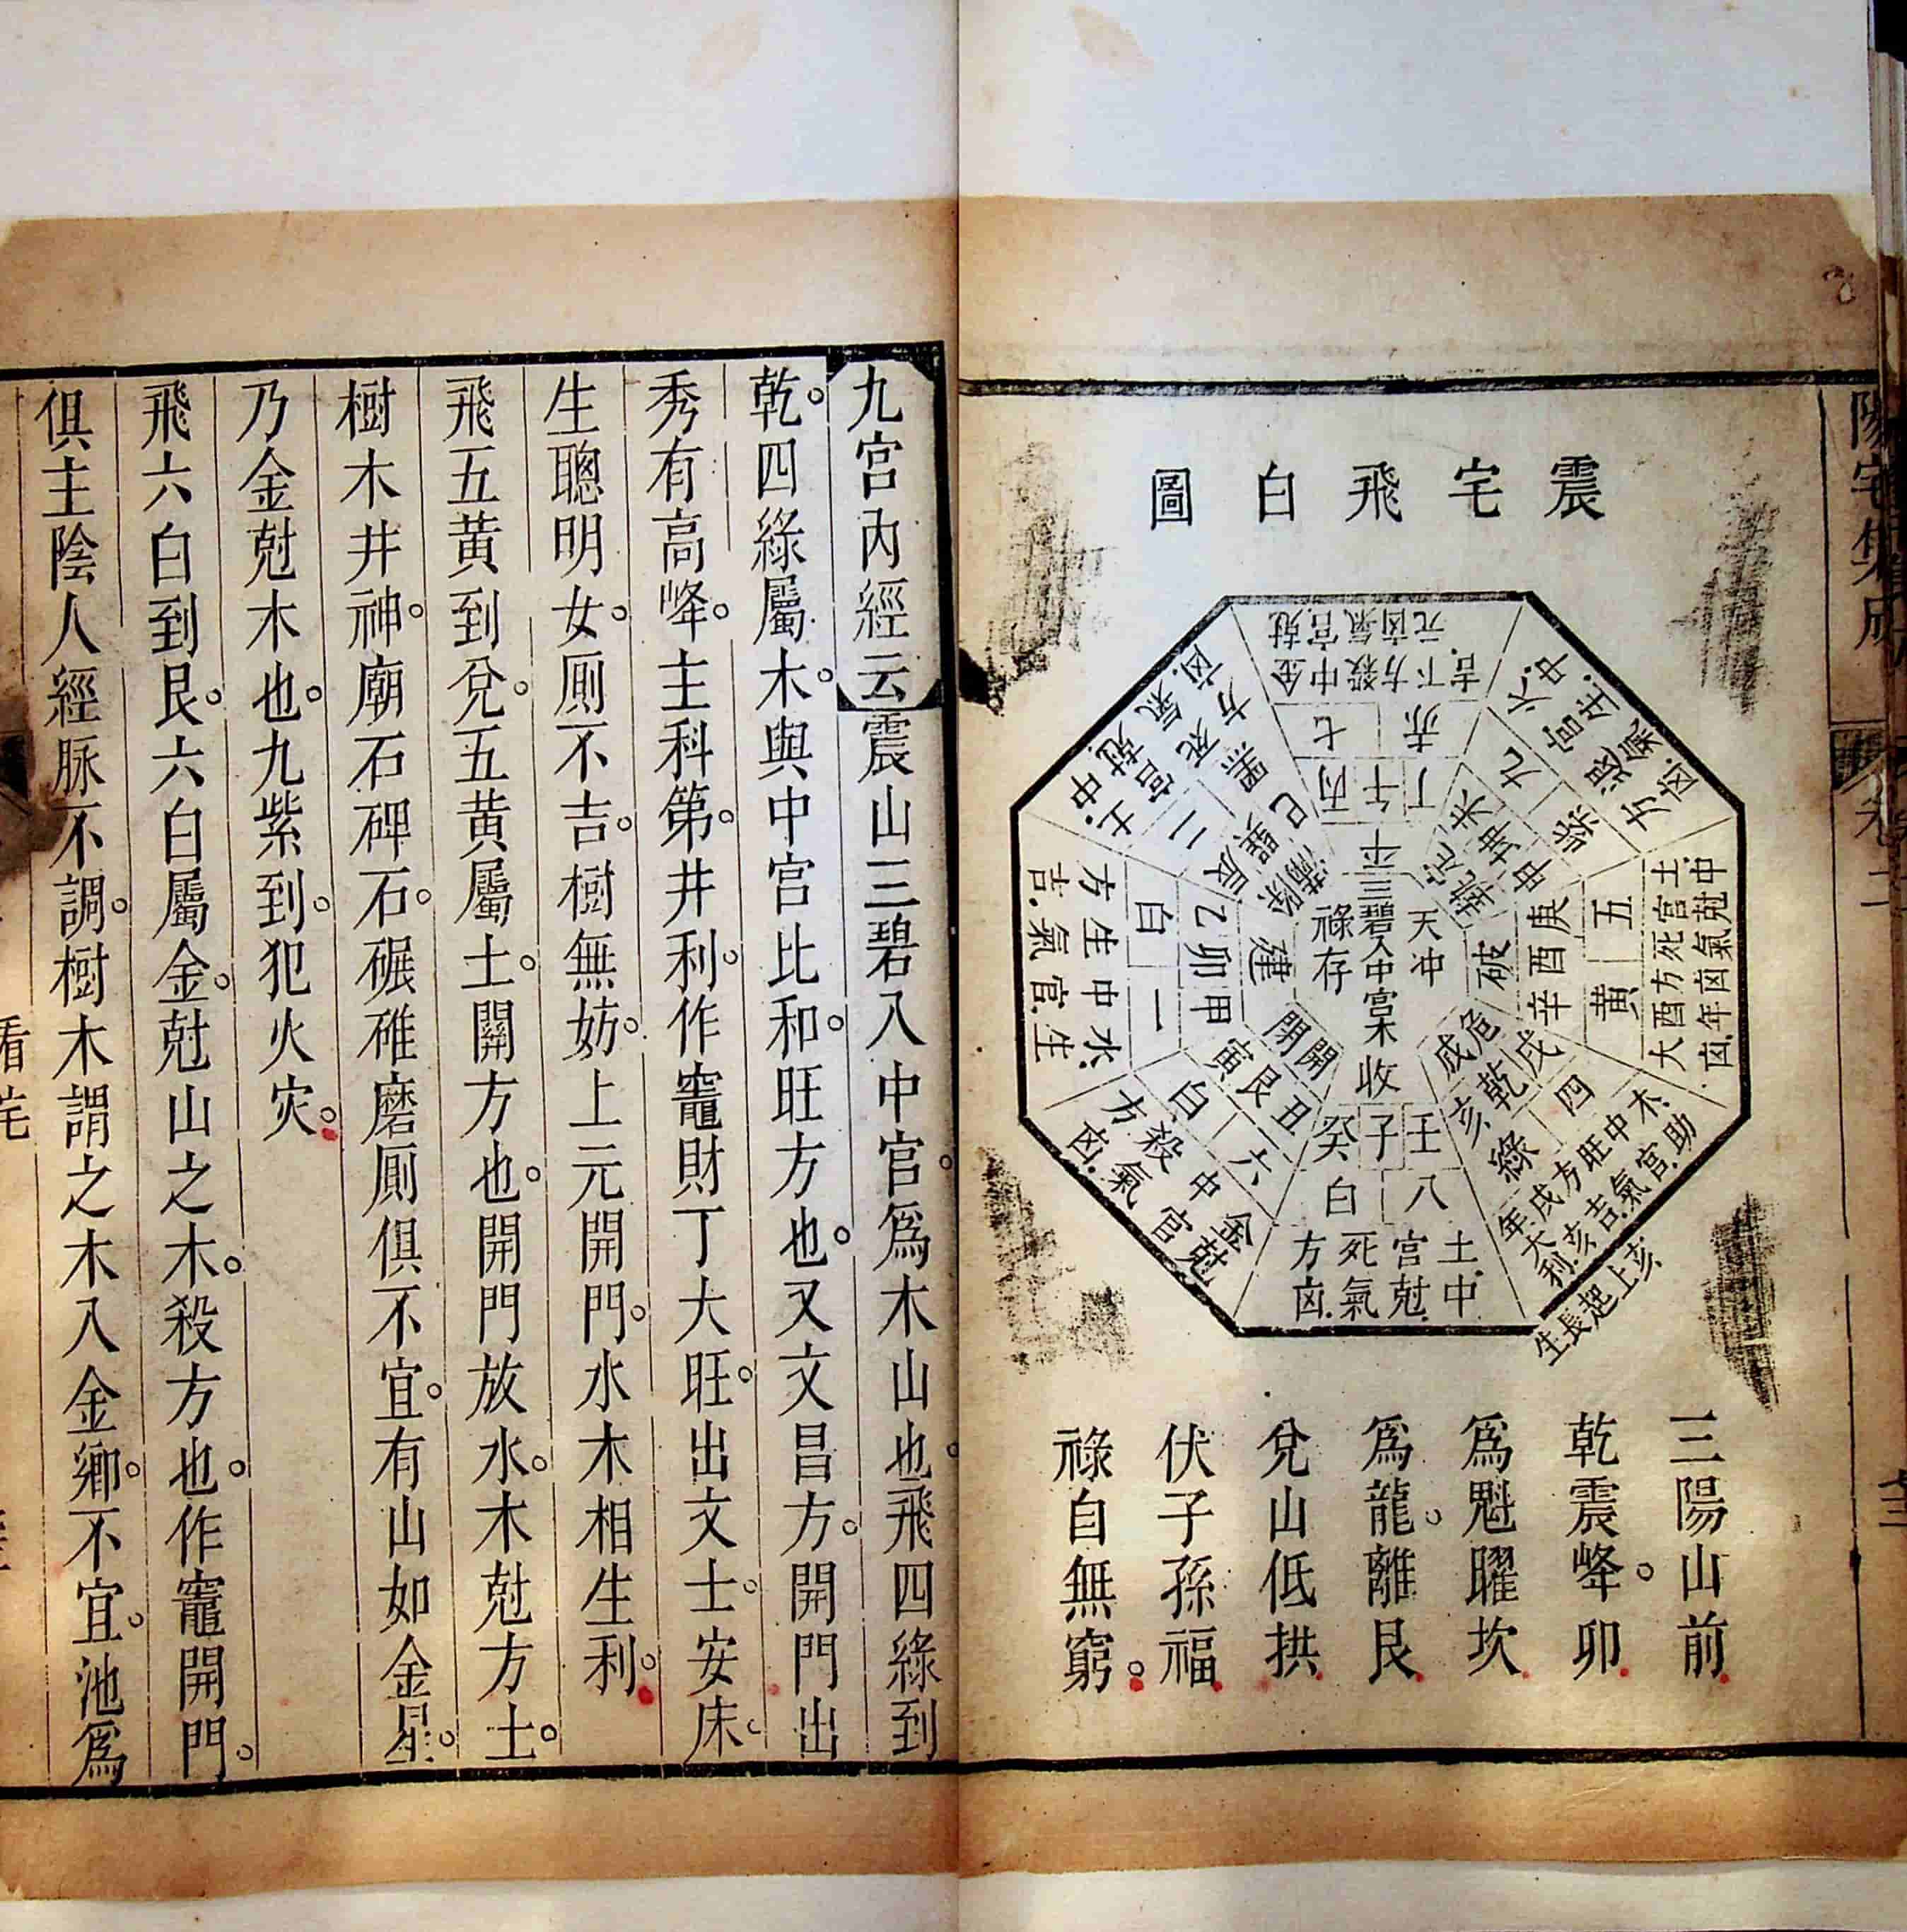 陽宅集成
卷二
震宅飛白圖
元凶氣官尅
吉下方殺中金
七赤
丙午丁
平
中火
宮生
氣退
凶方
九紫
未坤申
定執
中尅氣凶年凶
土宮死方酉大
五黃
庚酉辛
破
木中旺方戌年
助宮氣吉亥大利
亥上起長生
四綠
戌乾亥
危成
土宮死方
中尅氣凶
八白
壬子癸
收
金中殺方
尅官氣凶
六白
丑艮寅
開閉
水中生方
生官氣吉
一白
甲卯乙
建
土宮死方
中尅氣凶
二黑
辰巽巳
除滿
天冲
三碧入中宮木
祿存
三陽山前
乾震峰。卯
爲魁曜坎
爲龍。離艮
兌山低拱
伏子孫福
祿自無窮。
九宮內經云震山三碧入中官。爲木山也。飛四綠到
乾。四綠屬木。與中宮比和。旺方也。又文昌方。開門出
秀有高峰。主科第。井利。作竈財丁大旺。出文士。安床。
生聰明女。厠不吉。樹無妨。上元開門。水木相生利。
飛五黃到兌。五黃屬土。關方也。開門放水。木尅方土。
樹木井神。廟石碑石。碾碓磨厠俱不宜。有山如金星。
乃金尅木也。九紫到。犯火灾。
飛六白到艮。六白屬金。尅山之木。殺方也。作竈開門。
俱主陰人經脉不調。樹木謂之木入金鄉。不宜。池爲
看宅